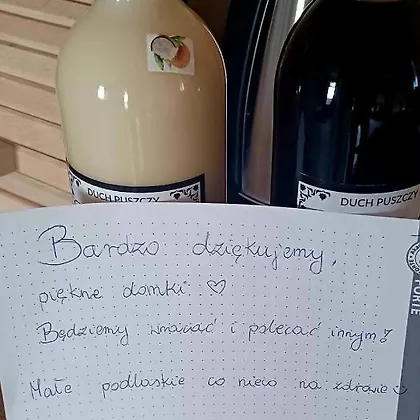 DUCH PUSZCZY
DUCH PUSZCZY
Bardzo dziękujemy,
piękne domki ♡
Będziemy wracać i polecać innym!
Małe podlaskie co nieco na zdrowie